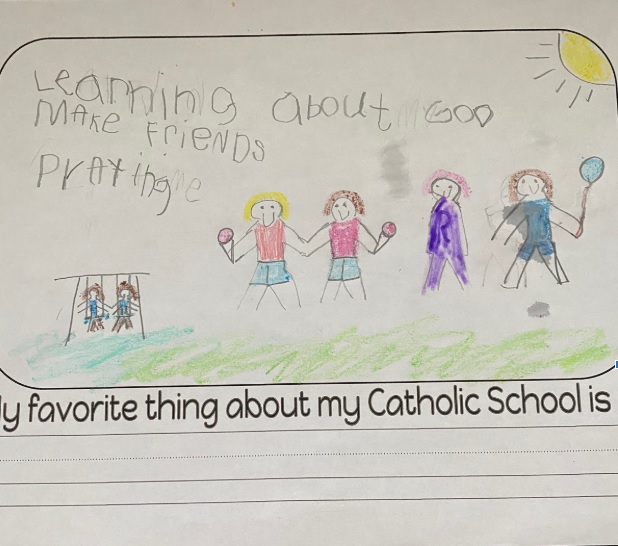 Learning about GOD
MAKE FRIENDS
PRAYing
ly favorite thing about my Catholic School is